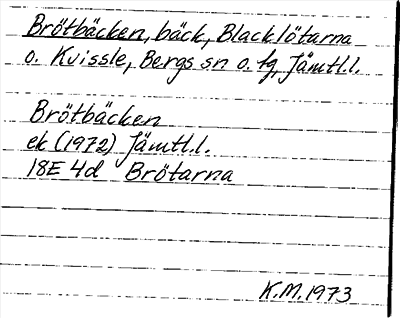 Brötbäcken, bäck, Blacklötarna
o. Kvissle, Bergs sn o. tg, Jämtl.l.
Brötbäcken
ek (1972) Jämtl.l.
18E 4d Brötarna
K.M. 1973